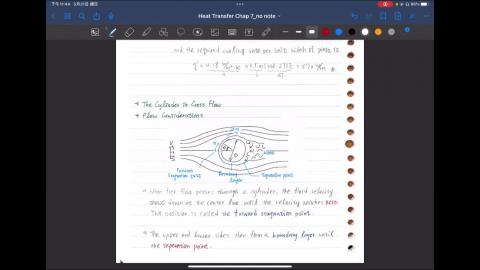 下午11:44 3月21日 週日
86%
Heat Transfer Chap 7_no note
and the required cooling rate per unit width of plate is
→ The Cylinder in Cross Flow
→ Flow Considerations
wake
Forward
stagnation point
Boundary
layer
Separation point
→ When free flow passes through a cylinder, the fluid velocity
slows down on the center line until the velocity reaches zero.
This position is called the forward stagnation point.
→ The upper and lower sides then form a boundary layer until
the separation point.